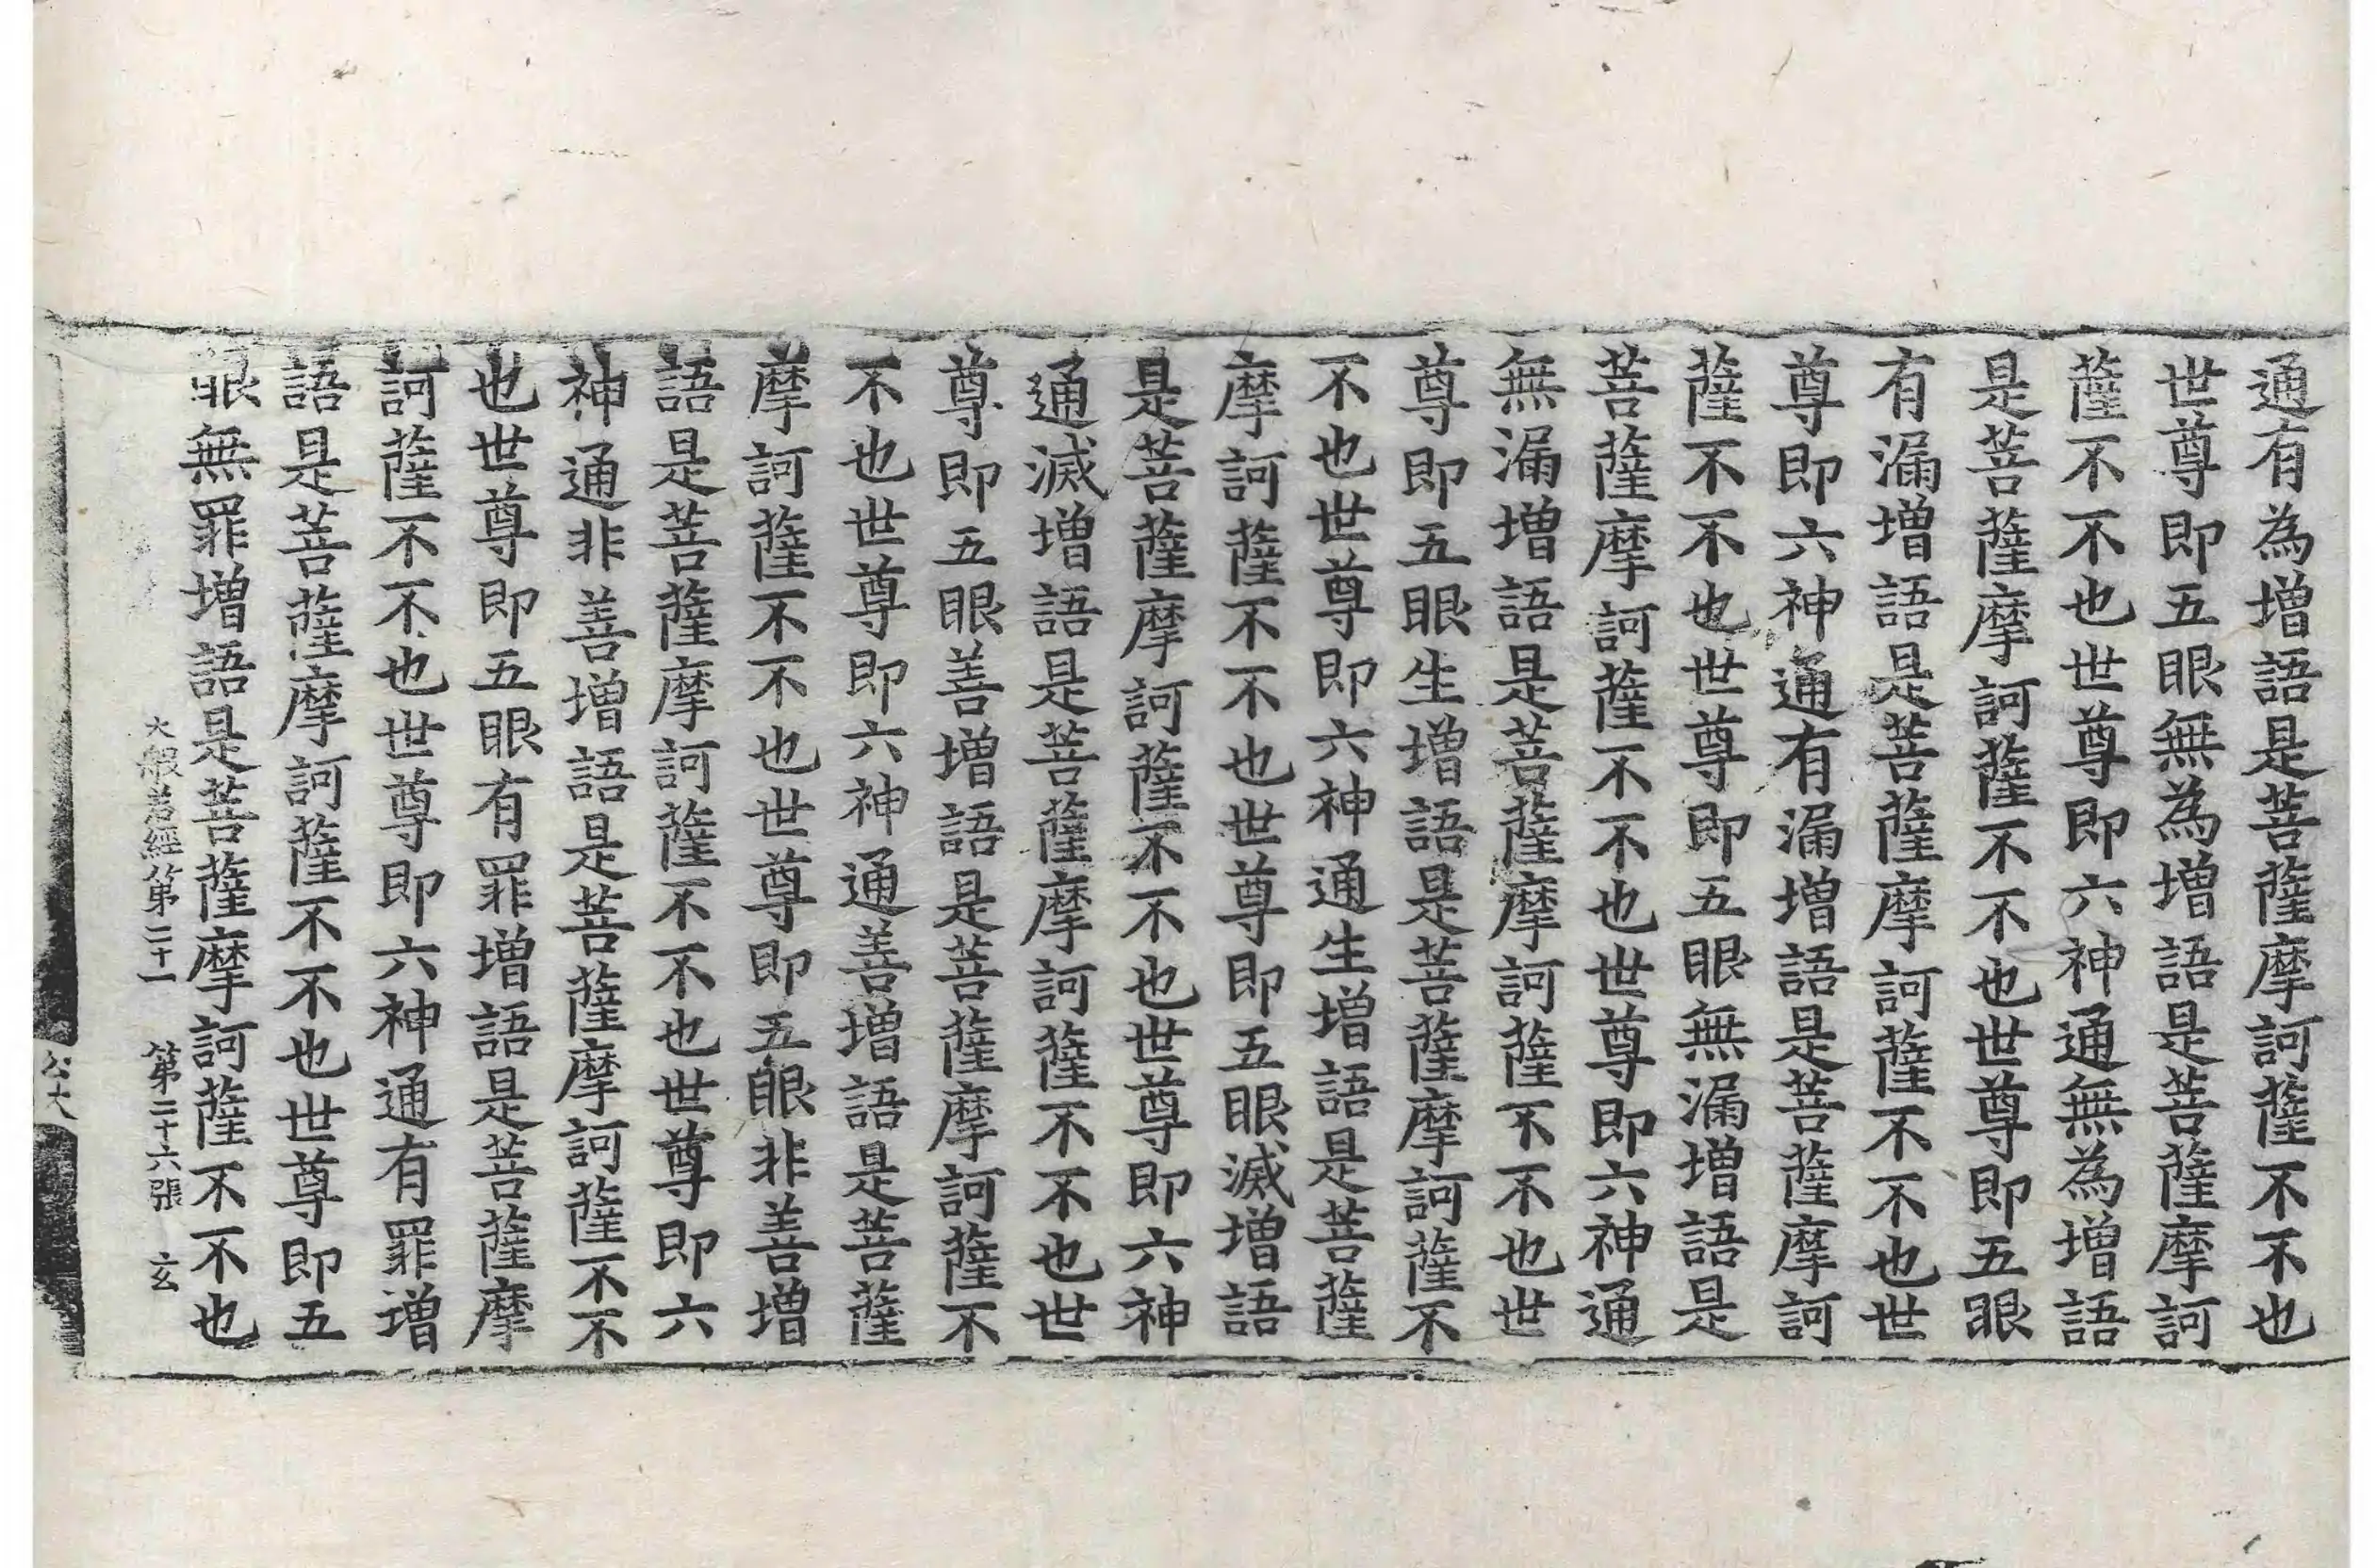 通有為增語是菩薩摩訶薩不不也
世尊即五眼無為增語是菩薩摩訶
薩不不也世尊即六神通無為增語
是菩薩摩訶薩不不也世尊即五眼
有漏增語是菩薩摩訶薩不不也世
尊即六神通有漏增語是菩薩摩訶
薩不不也世尊即五眼無漏增語是
菩薩摩訶薩不不也世尊即六神通
無漏增語是菩薩摩訶薩不不也世
尊即五眼生增語是菩薩摩訶薩不
不也世尊即六神通生增語是菩薩
摩訶薩不不也世尊即五眼滅增語
是菩薩摩訶薩不不也世尊即六神
通滅增語是菩薩摩訶薩不不也世
尊即五眼善增語是菩薩摩訶薩不
不也世尊即六神通善增語是菩薩
摩訶薩不不也世尊即五眼非善增
語是菩薩摩訶薩不不也世尊即六
神通非善增語是菩薩摩訶薩不不
也世尊即五眼有罪增語是菩薩摩
訶薩不不也世尊即六神通有罪增
語是菩薩摩訶薩不不也世尊即五
眼無罪增語是菩薩摩訶薩不不也
大般若經第二十一 第二十六張 玄
公大